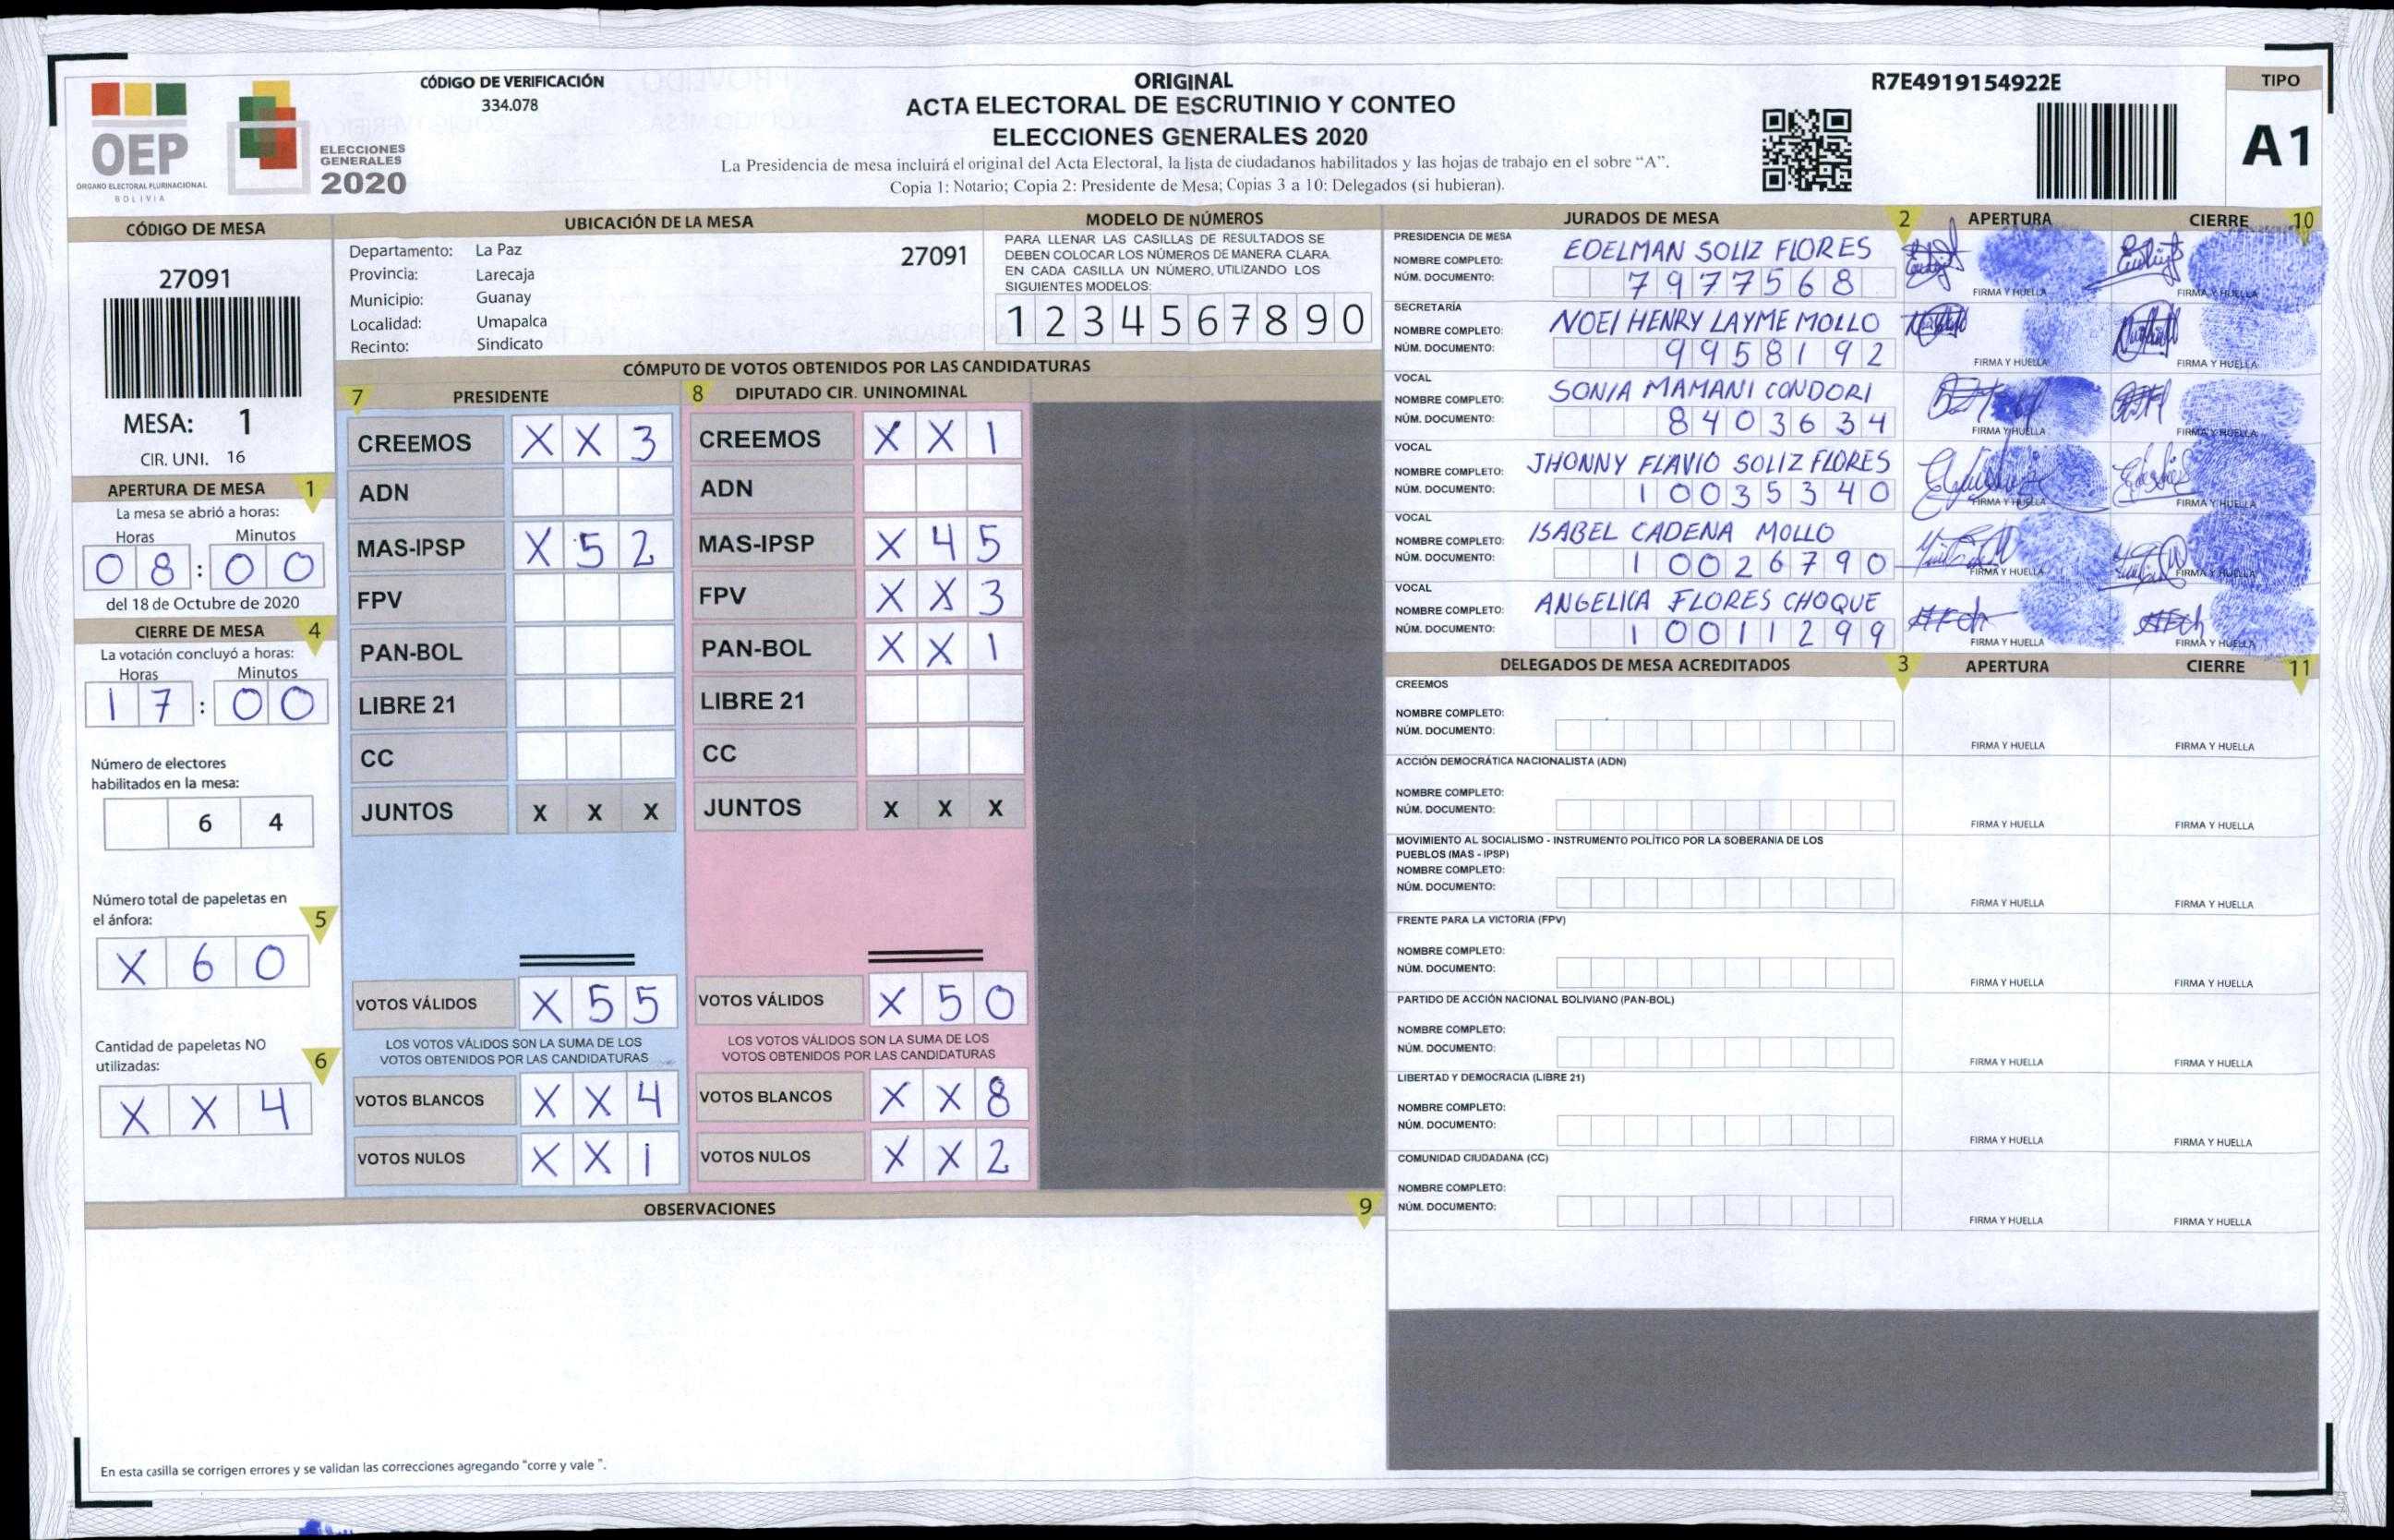 CÓDIGO DE VERIFICACIÓN
334.078
ORIGINAL
ACTA ELECTORAL DE ESCRUTINIO Y CONTEO
ELECCIONES GENERALES 2020
La Presidencia de mesa incluirá el original del Acta Electoral, la lista de ciudadanos habilitados y las hojas de trabajo en el sobre “A”.
Copia 1: Notario; Copia 2: Presidente de Mesa; Copias 3 a 10: Delegados (si hubieran).
R7E4919154922E
TIPO
A1
OEP
ÓRGANO ELECTORAL PLURINACIONAL
BOLIVIA
ELECCIONES
GENERALES
2020
CÓDIGO DE MESA
27091
MESA: 1
CIR. UNI. 16
APERTURA DE MESA 1
La mesa se abrió a horas:
Horas Minutos
08:00
del 18 de Octubre de 2020
CIERRE DE MESA 4
La votación concluyó a horas:
Horas Minutos
17:00
Número de electores
habilitados en la mesa:
6 4
Número total de papeletas en
el ánfora: 5
X 6 0
Cantidad de papeletas NO
utilizadas: 6
X X 4
UBICACIÓN DE LA MESA
Departamento: La Paz 27091
Provincia: Larecaja
Municipio: Guanay
Localidad: Umapalca
Recinto: Sindicato
MODELO DE NÚMEROS
PARA LLENAR LAS CASILLAS DE RESULTADOS SE
DEBEN COLOCAR LOS NÚMEROS DE MANERA CLARA.
EN CADA CASILLA UN NÚMERO, UTILIZANDO LOS
SIGUIENTES MODELOS:
1 2 3 4 5 6 7 8 9 0
CÓMPUTO DE VOTOS OBTENIDOS POR LAS CANDIDATURAS
7 PRESIDENTE
CREEMOS X X 3
ADN
MAS-IPSP X 5 2
FPV
PAN-BOL
LIBRE 21
CC
JUNTOS X X X
VOTOS VÁLIDOS X 5 5
LOS VOTOS VÁLIDOS SON LA SUMA DE LOS
VOTOS OBTENIDOS POR LAS CANDIDATURAS
VOTOS BLANCOS X X 4
VOTOS NULOS X X 1
8 DIPUTADO CIR. UNINOMINAL
CREEMOS X X 1
ADN
MAS-IPSP X 4 5
FPV X X 3
PAN-BOL X X 1
LIBRE 21
CC
JUNTOS X X X
VOTOS VÁLIDOS X 5 0
LOS VOTOS VÁLIDOS SON LA SUMA DE LOS
VOTOS OBTENIDOS POR LAS CANDIDATURAS
VOTOS BLANCOS X X 8
VOTOS NULOS X X 2
OBSERVACIONES 9
En esta casilla se corrigen errores y se validan las correcciones agregando "corre y vale ".
JURADOS DE MESA 2 APERTURA CIERRE 10
PRESIDENCIA DE MESA
NOMBRE COMPLETO: EDELMAN SOLIZ FLORES
NÚM. DOCUMENTO: 7977568
FIRMA Y HUELLA FIRMA Y HUELLA
SECRETARÍA
NOMBRE COMPLETO: NOEI HENRY LAYME MOLLO
NÚM. DOCUMENTO: 9958192
FIRMA Y HUELLA FIRMA Y HUELLA
VOCAL
NOMBRE COMPLETO: SONIA MAMANI CONDORI
NÚM. DOCUMENTO: 8403634
FIRMA Y HUELLA FIRMA Y HUELLA
VOCAL
NOMBRE COMPLETO: JHONNY FLAVIO SOLIZ FLORES
NÚM. DOCUMENTO: 10035340
FIRMA Y HUELLA FIRMA Y HUELLA
VOCAL
NOMBRE COMPLETO: ISABEL CADENA MOLLO
NÚM. DOCUMENTO: 10026790
FIRMA Y HUELLA FIRMA Y HUELLA
VOCAL
NOMBRE COMPLETO: ANGELICA FLORES CHOQUE
NÚM. DOCUMENTO: 10011299
FIRMA Y HUELLA FIRMA Y HUELLA
DELEGADOS DE MESA ACREDITADOS 3 APERTURA CIERRE 11
CREEMOS
NOMBRE COMPLETO:
NÚM. DOCUMENTO:
FIRMA Y HUELLA FIRMA Y HUELLA
ACCIÓN DEMOCRÁTICA NACIONALISTA (ADN)
NOMBRE COMPLETO:
NÚM. DOCUMENTO:
FIRMA Y HUELLA FIRMA Y HUELLA
MOVIMIENTO AL SOCIALISMO - INSTRUMENTO POLÍTICO POR LA SOBERANIA DE LOS
PUEBLOS (MAS - IPSP)
NOMBRE COMPLETO:
NÚM. DOCUMENTO:
FIRMA Y HUELLA FIRMA Y HUELLA
FRENTE PARA LA VICTORIA (FPV)
NOMBRE COMPLETO:
NÚM. DOCUMENTO:
FIRMA Y HUELLA FIRMA Y HUELLA
PARTIDO DE ACCIÓN NACIONAL BOLIVIANO (PAN-BOL)
NOMBRE COMPLETO:
NÚM. DOCUMENTO:
FIRMA Y HUELLA FIRMA Y HUELLA
LIBERTAD Y DEMOCRACIA (LIBRE 21)
NOMBRE COMPLETO:
NÚM. DOCUMENTO:
FIRMA Y HUELLA FIRMA Y HUELLA
COMUNIDAD CIUDADANA (CC)
NOMBRE COMPLETO:
NÚM. DOCUMENTO:
FIRMA Y HUELLA FIRMA Y HUELLA